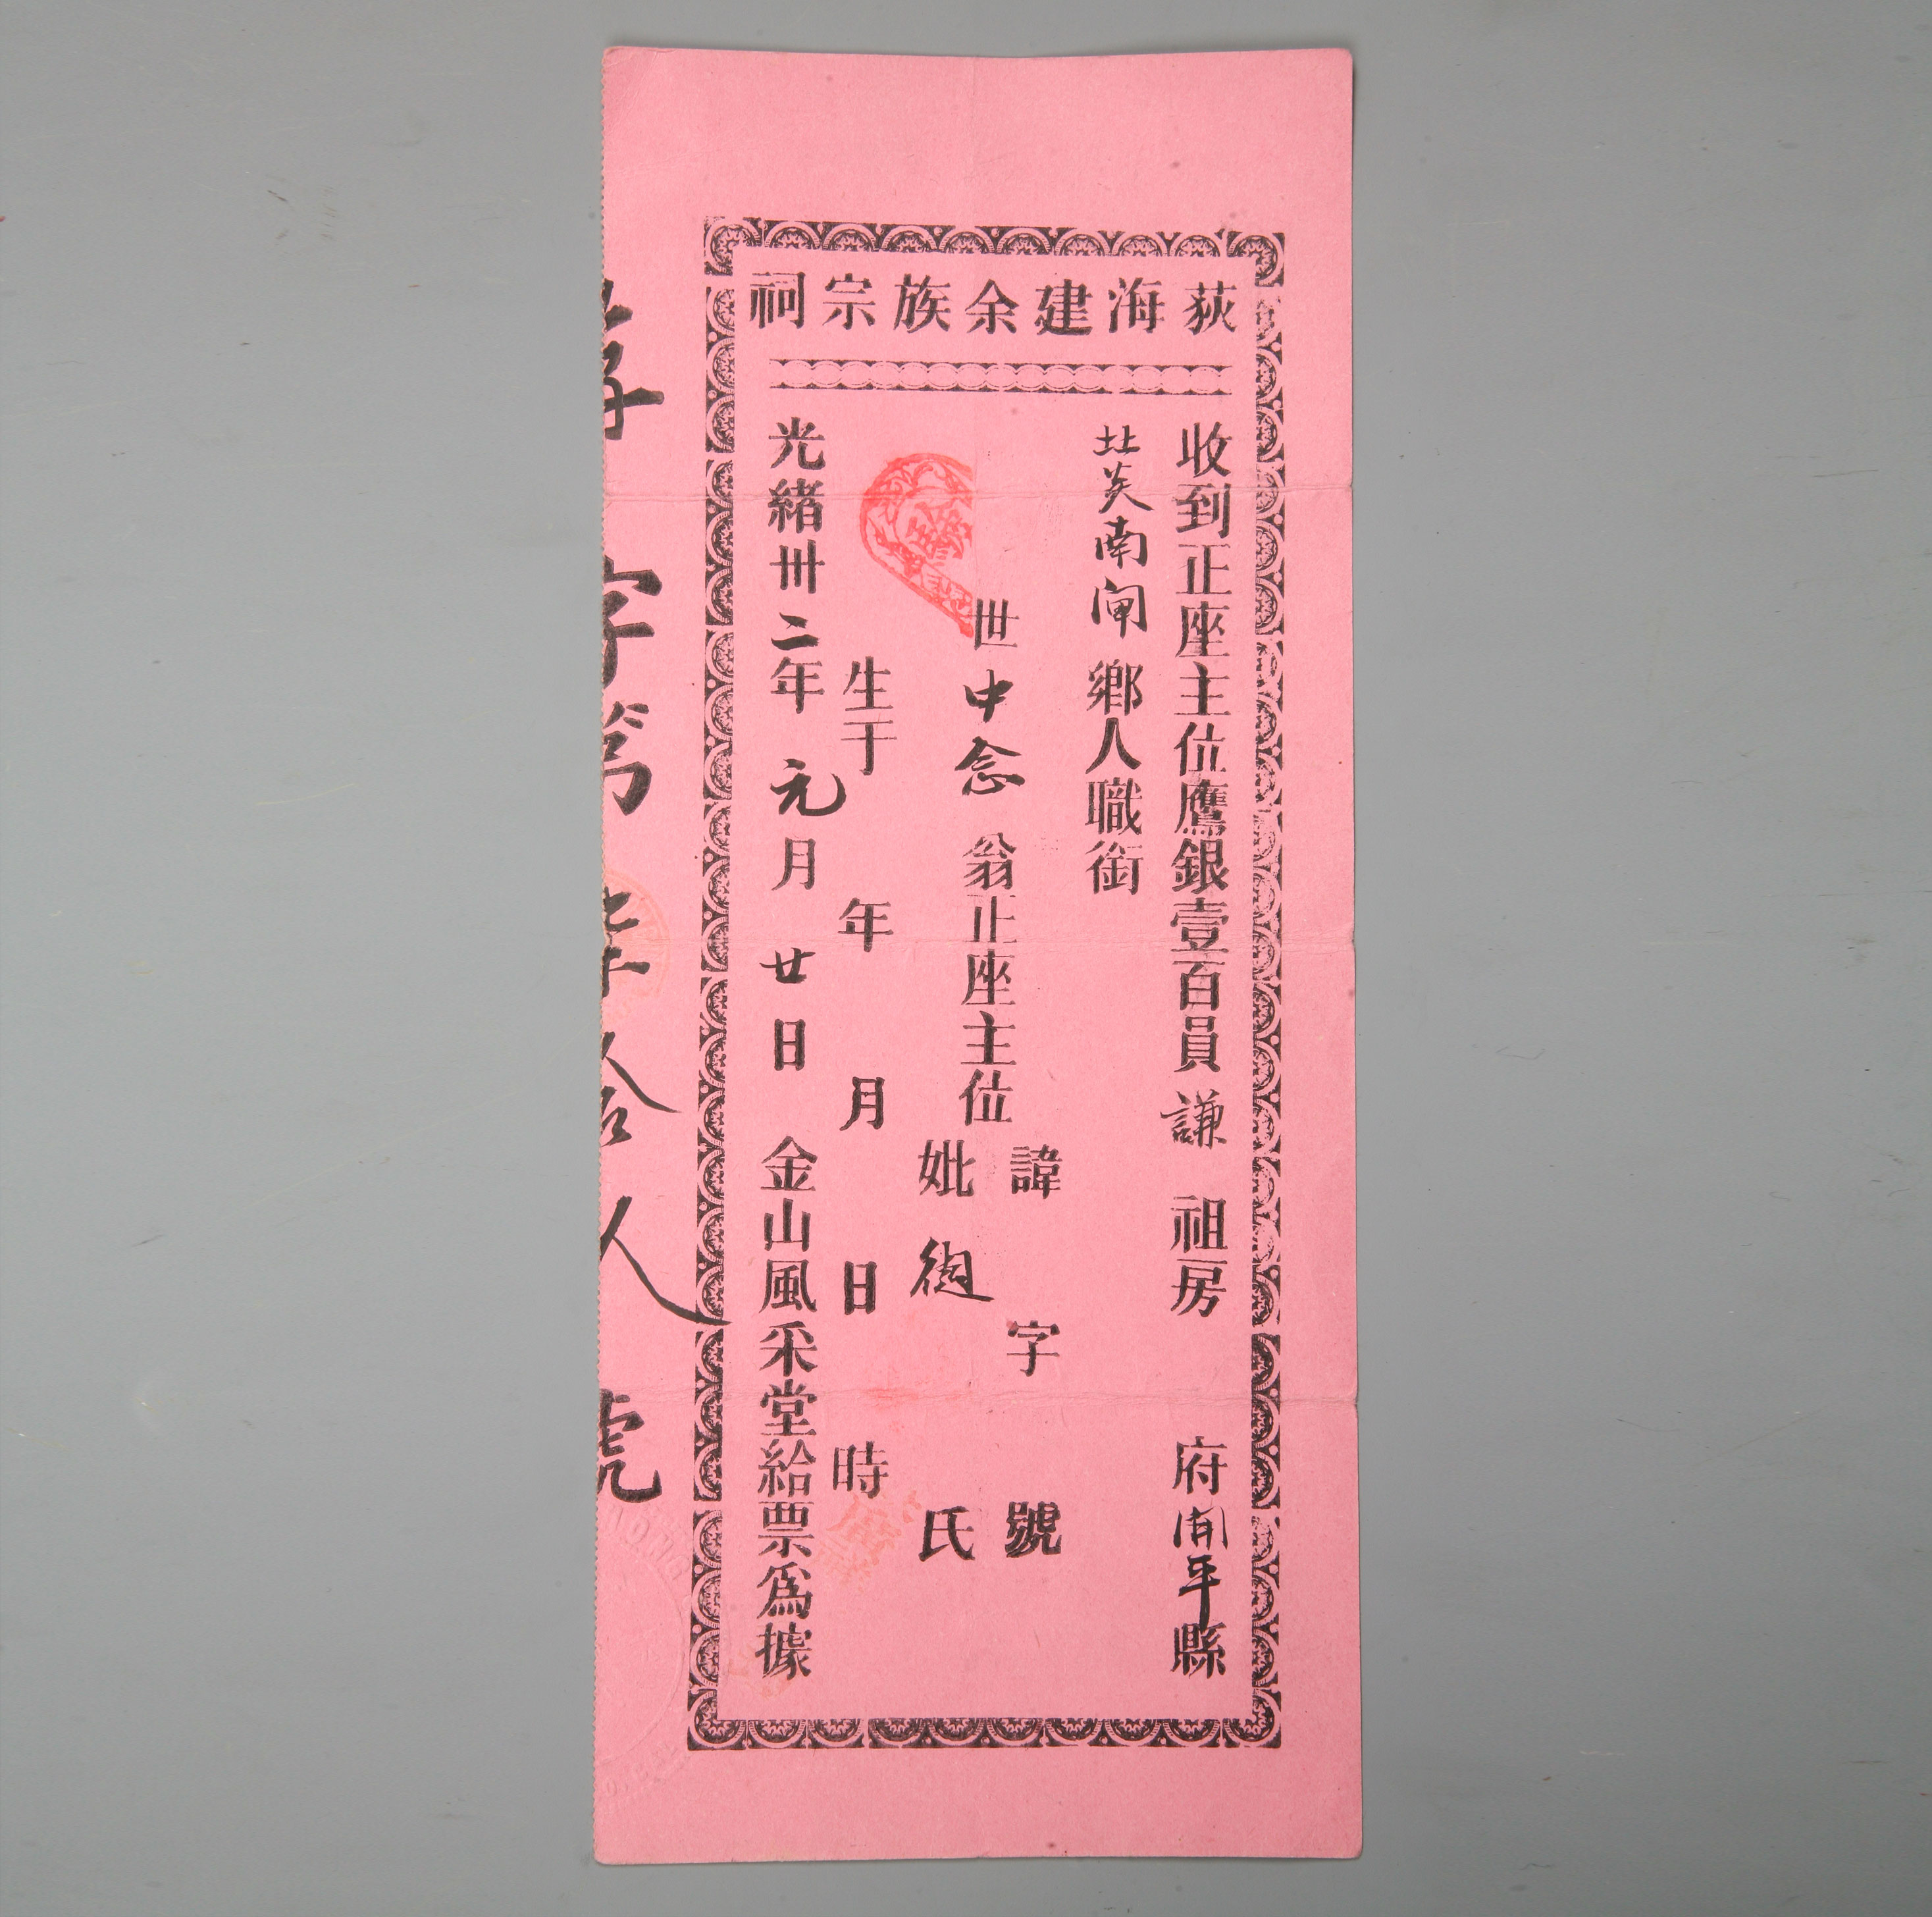 荻海建余族宗祠
收到正座主位鷹銀壹百員謙祖房 府開平縣
北炎南閘鄉人職銜
諱 字 號
世中念翁正座主位
妣 氏
生于 年 月 日 時
光緒卅二年元月廿日金山風采堂給票為據
字第 拾 號